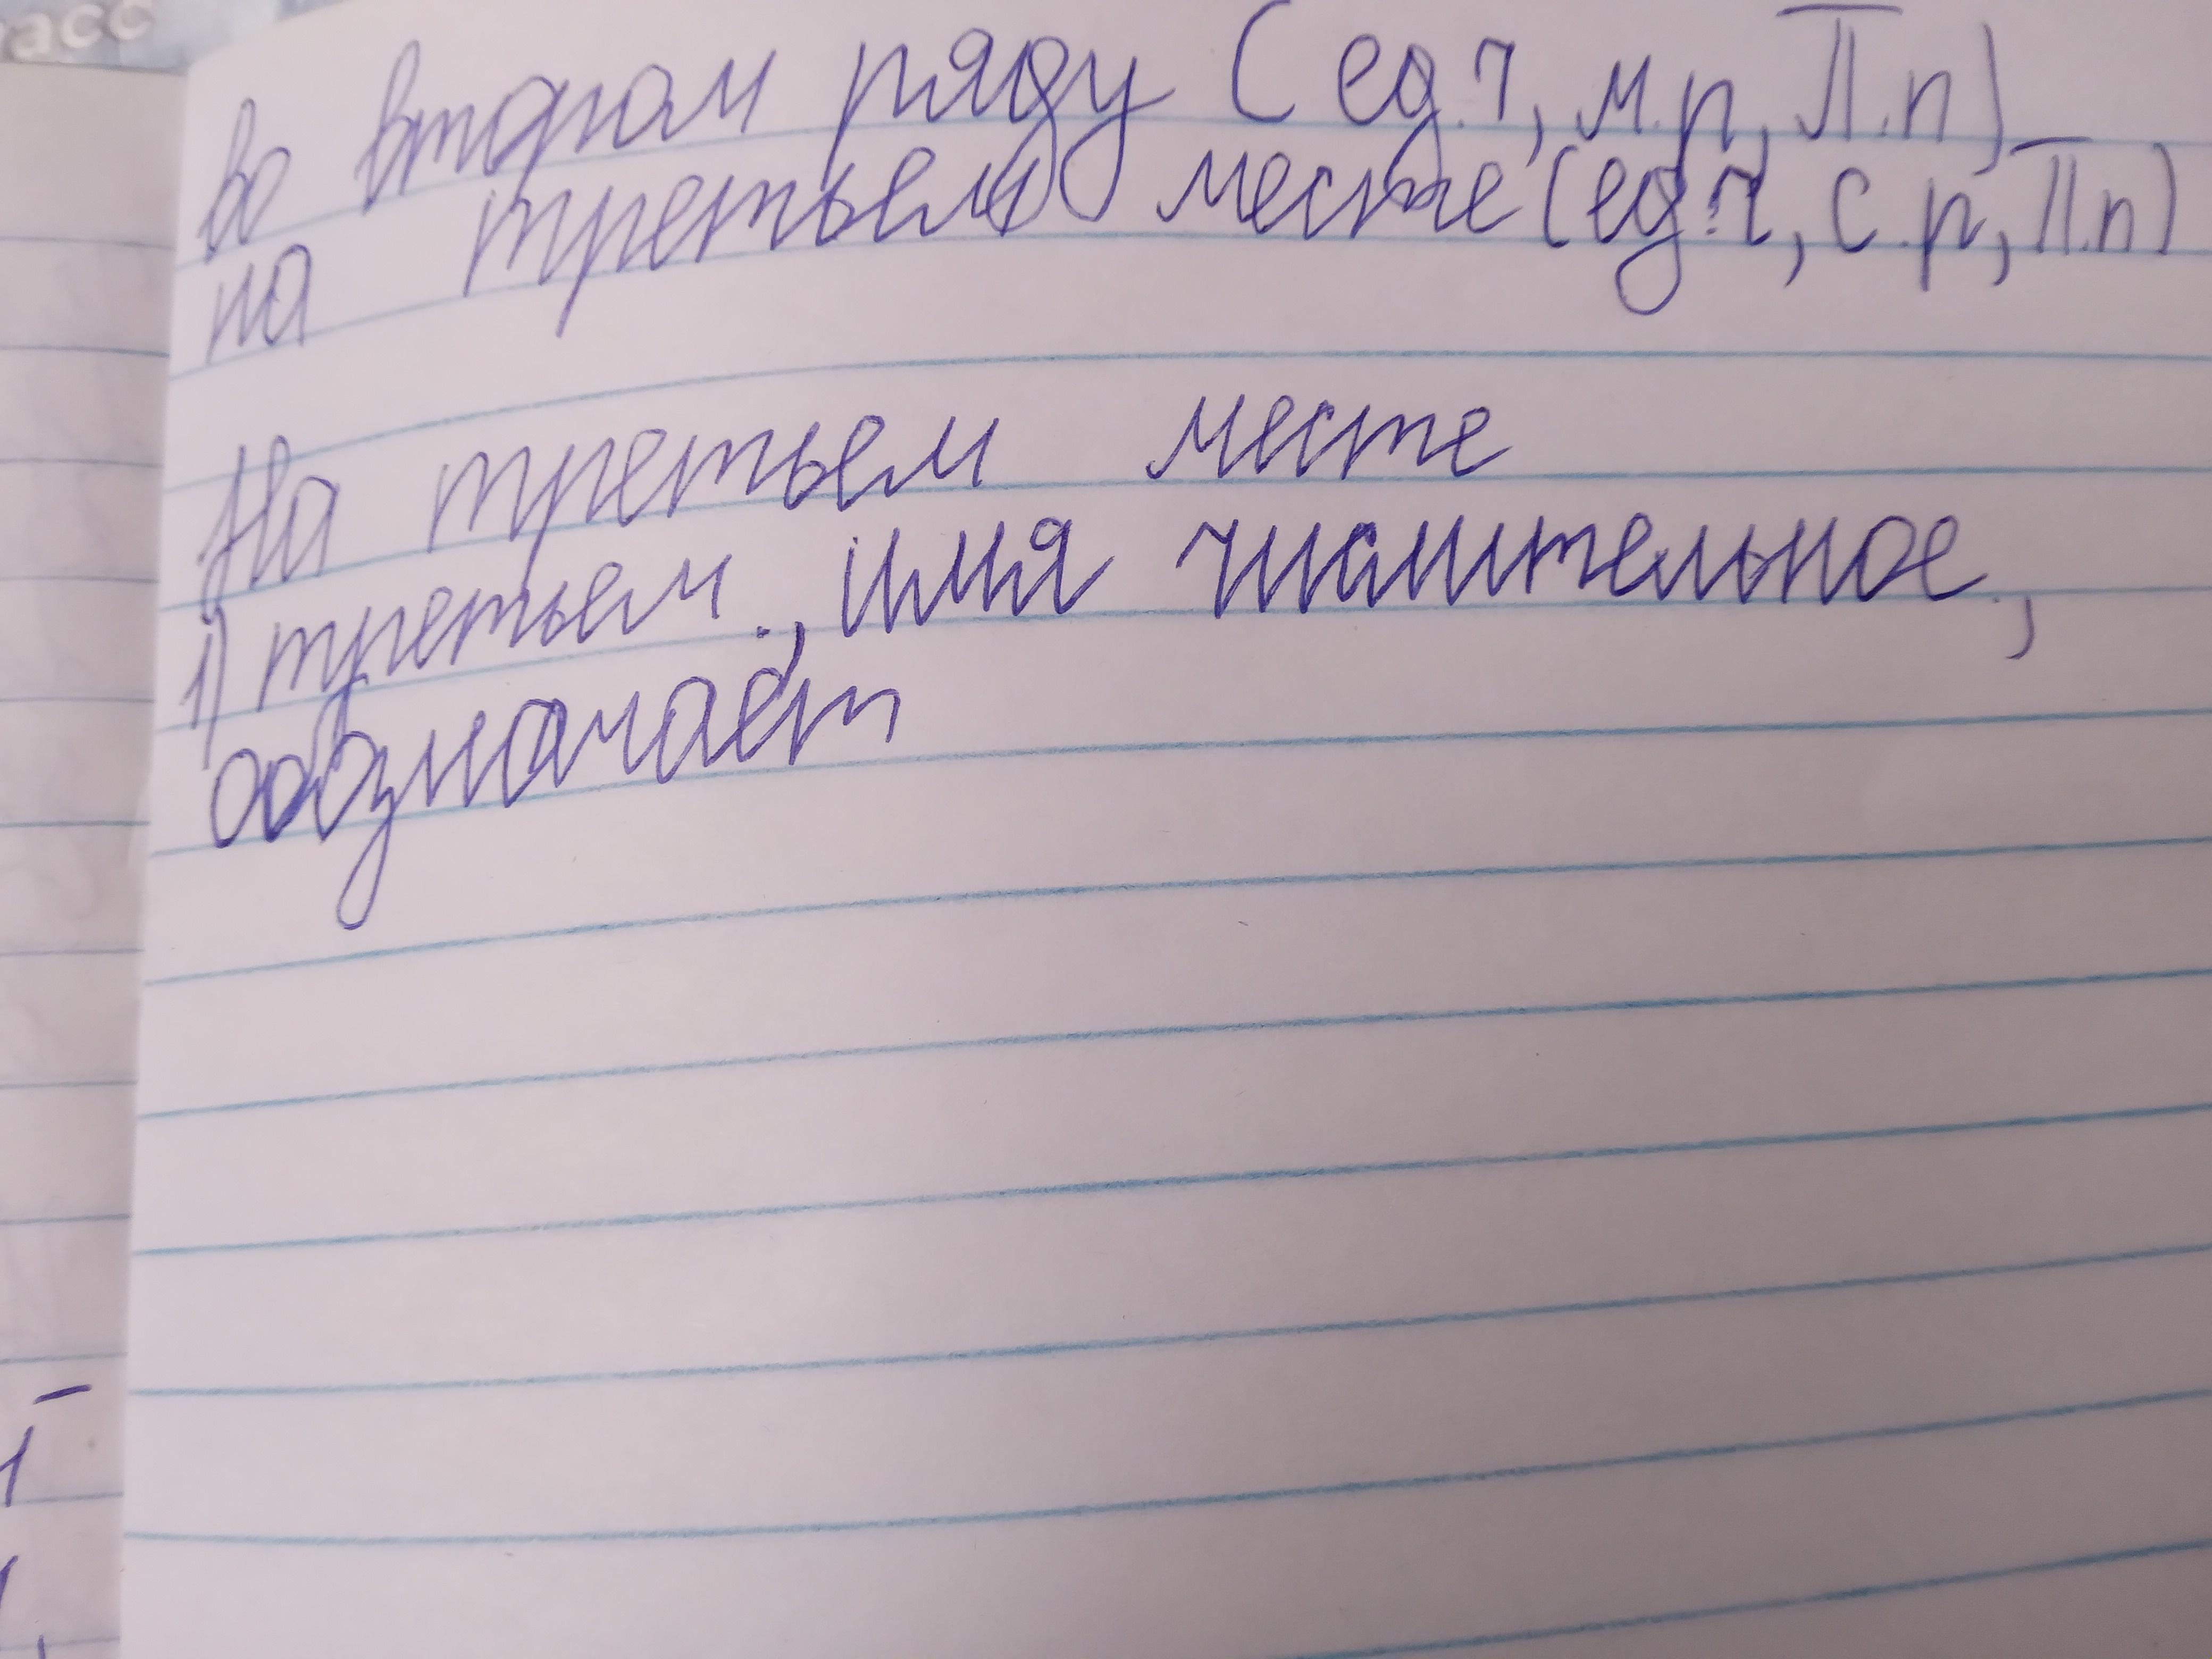 асс
во втором ряду (ед.ч, м.р, П.п)
на третьем месте (ед.ч, с.р, П.п)
На третьем месте
1) третьем., имя числительное.,
обозначает